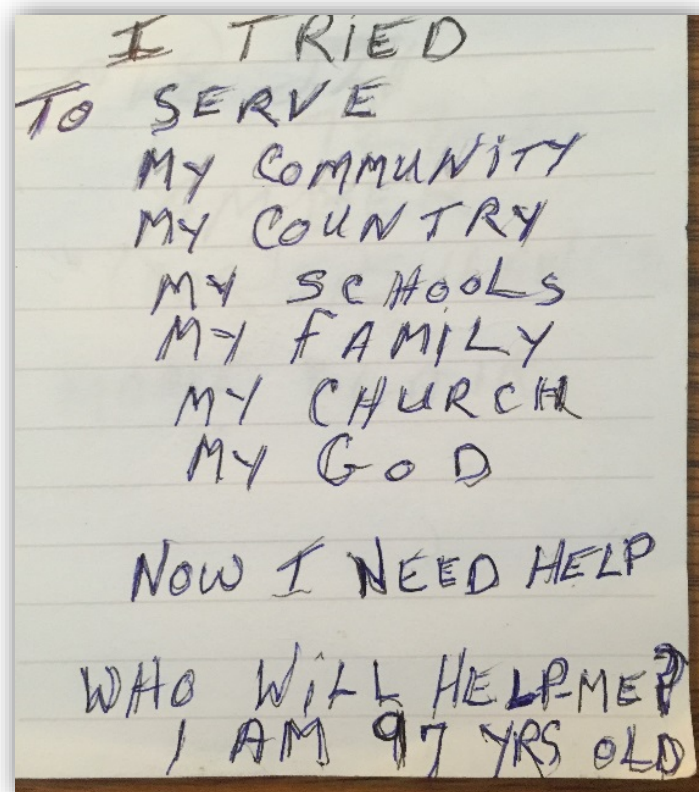 I TRIED
TO SERVE
MY COMMUNITY
MY COUNTRY
MY SCHOOLS
MY FAMILY
MY CHURCH
MY GOD
NOW I NEED HELP
WHO WILL HELP ME?
I AM 97 YRS OLD